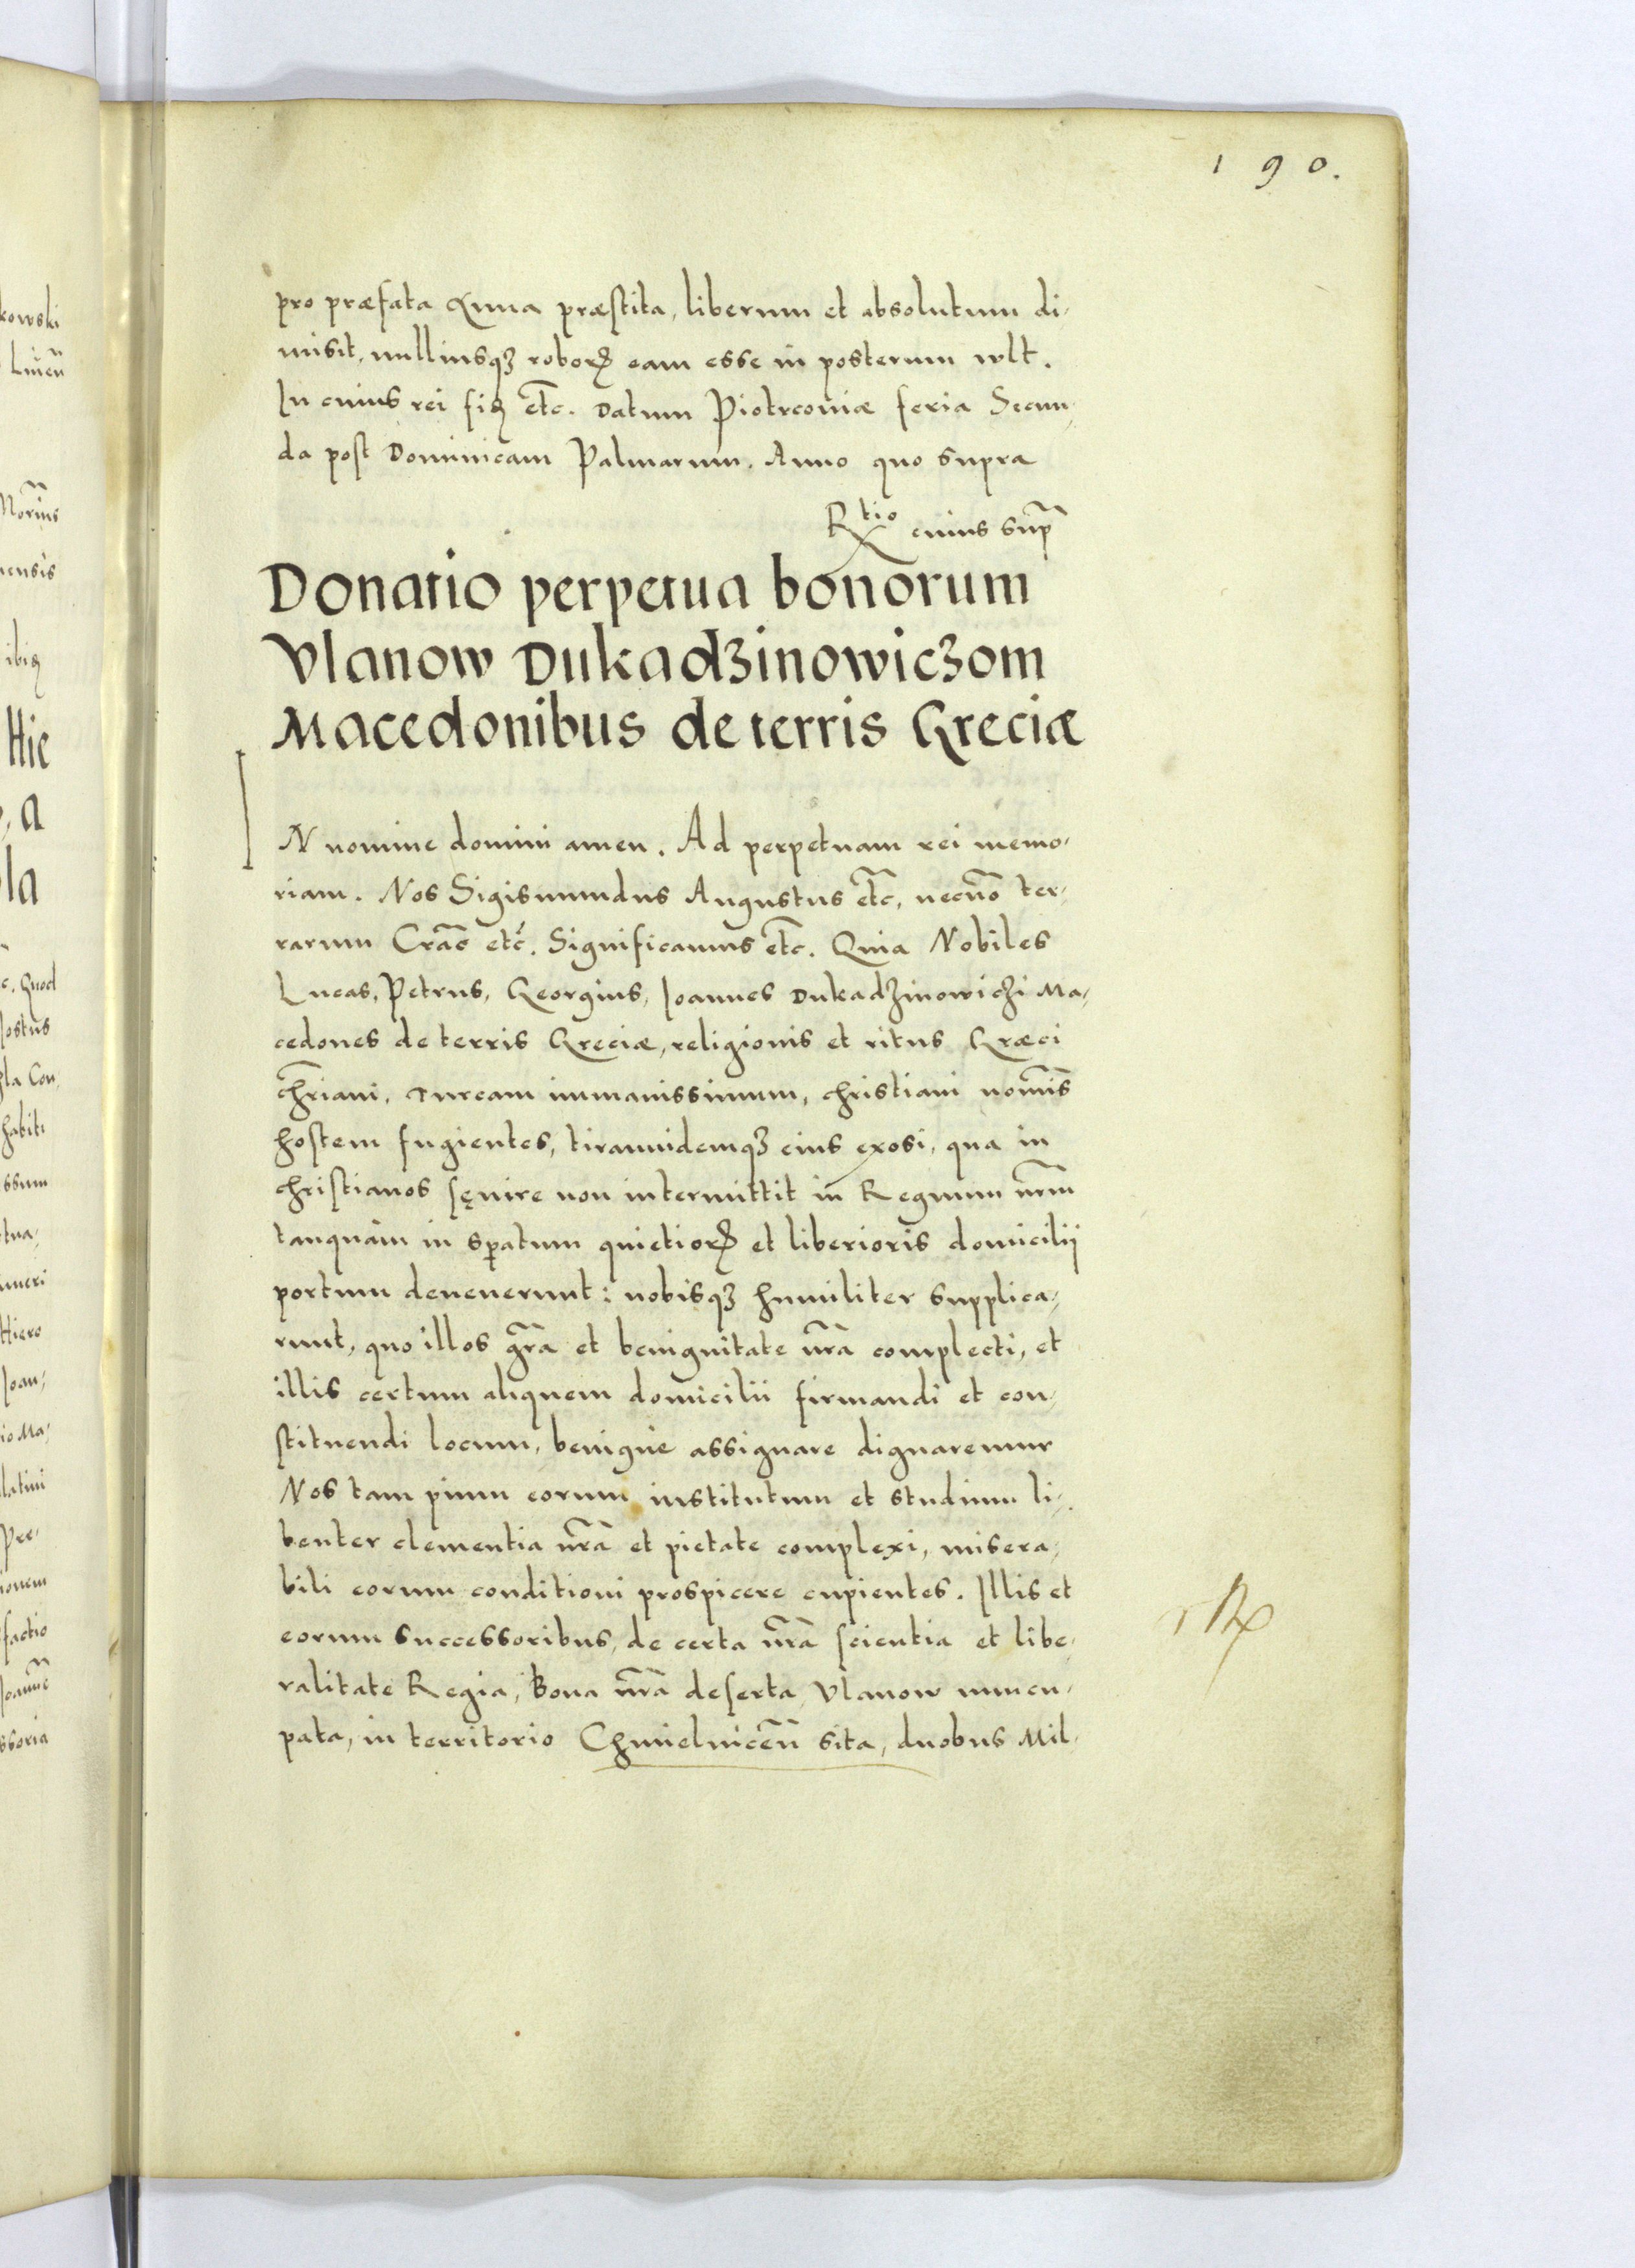 190.
pro præfata summa præstita, liberum et absolutum di-
misit, nulliusqʒ roborꝭ eam esse in posterum wlt.
In cuius rei fiꝫ etc̃. Datum Piotrcoviæ feria Secun-
da post Dominicam Palmarum. Anno quo supra
Rtio cuius sup̃
Donatio perpetua bonorum
Vlanow Dukadʒinowicʒom
Macedonibus de terris Greciæ
IN nomine domini amen. Ad perpetuam rei memo-
riam. Nos Sigismundus Augustus etc̃, necño ter-
rarum Crãc etc̃. Significamus etc̃. Quia Nobiles
Lucas, Petrus, Georgius, Joannes Dukadʒinowicʒi Ma-
cedones de terris Greciæ, religionis et ritus Græci
chr̃iani, Turcam inmanissimum, christiani nom̃is
hostem fugientes, tirannidemqʒ eius exosi, qua in
christianos sęuire non intermittit in Regnum nr̃m
tanquam in sꝑatum quietiorꝭ et liberioris domicilij
portum deuenerunt: nobisqʒ humiliter supplica-
runt, quo illos gr̃a et benignitate nr̃a complecti, et
illis certum aliquem domicilii firmandi et con-
stituendi locum, benigne assignare dignaremur
Nos tam pium eorum institutum et studium li-
benter clementia nr̃a et pietate complexi, misera-
bili eorum conditioni prospicere cupientes. Illis et
eorum successoribus, de certa nr̃a scientia et libe-
ralitate Regia, Bona nr̃a deserta Vlanow nuncu-
pata, in territorio Chmielniceñ sita, duobus Mil-